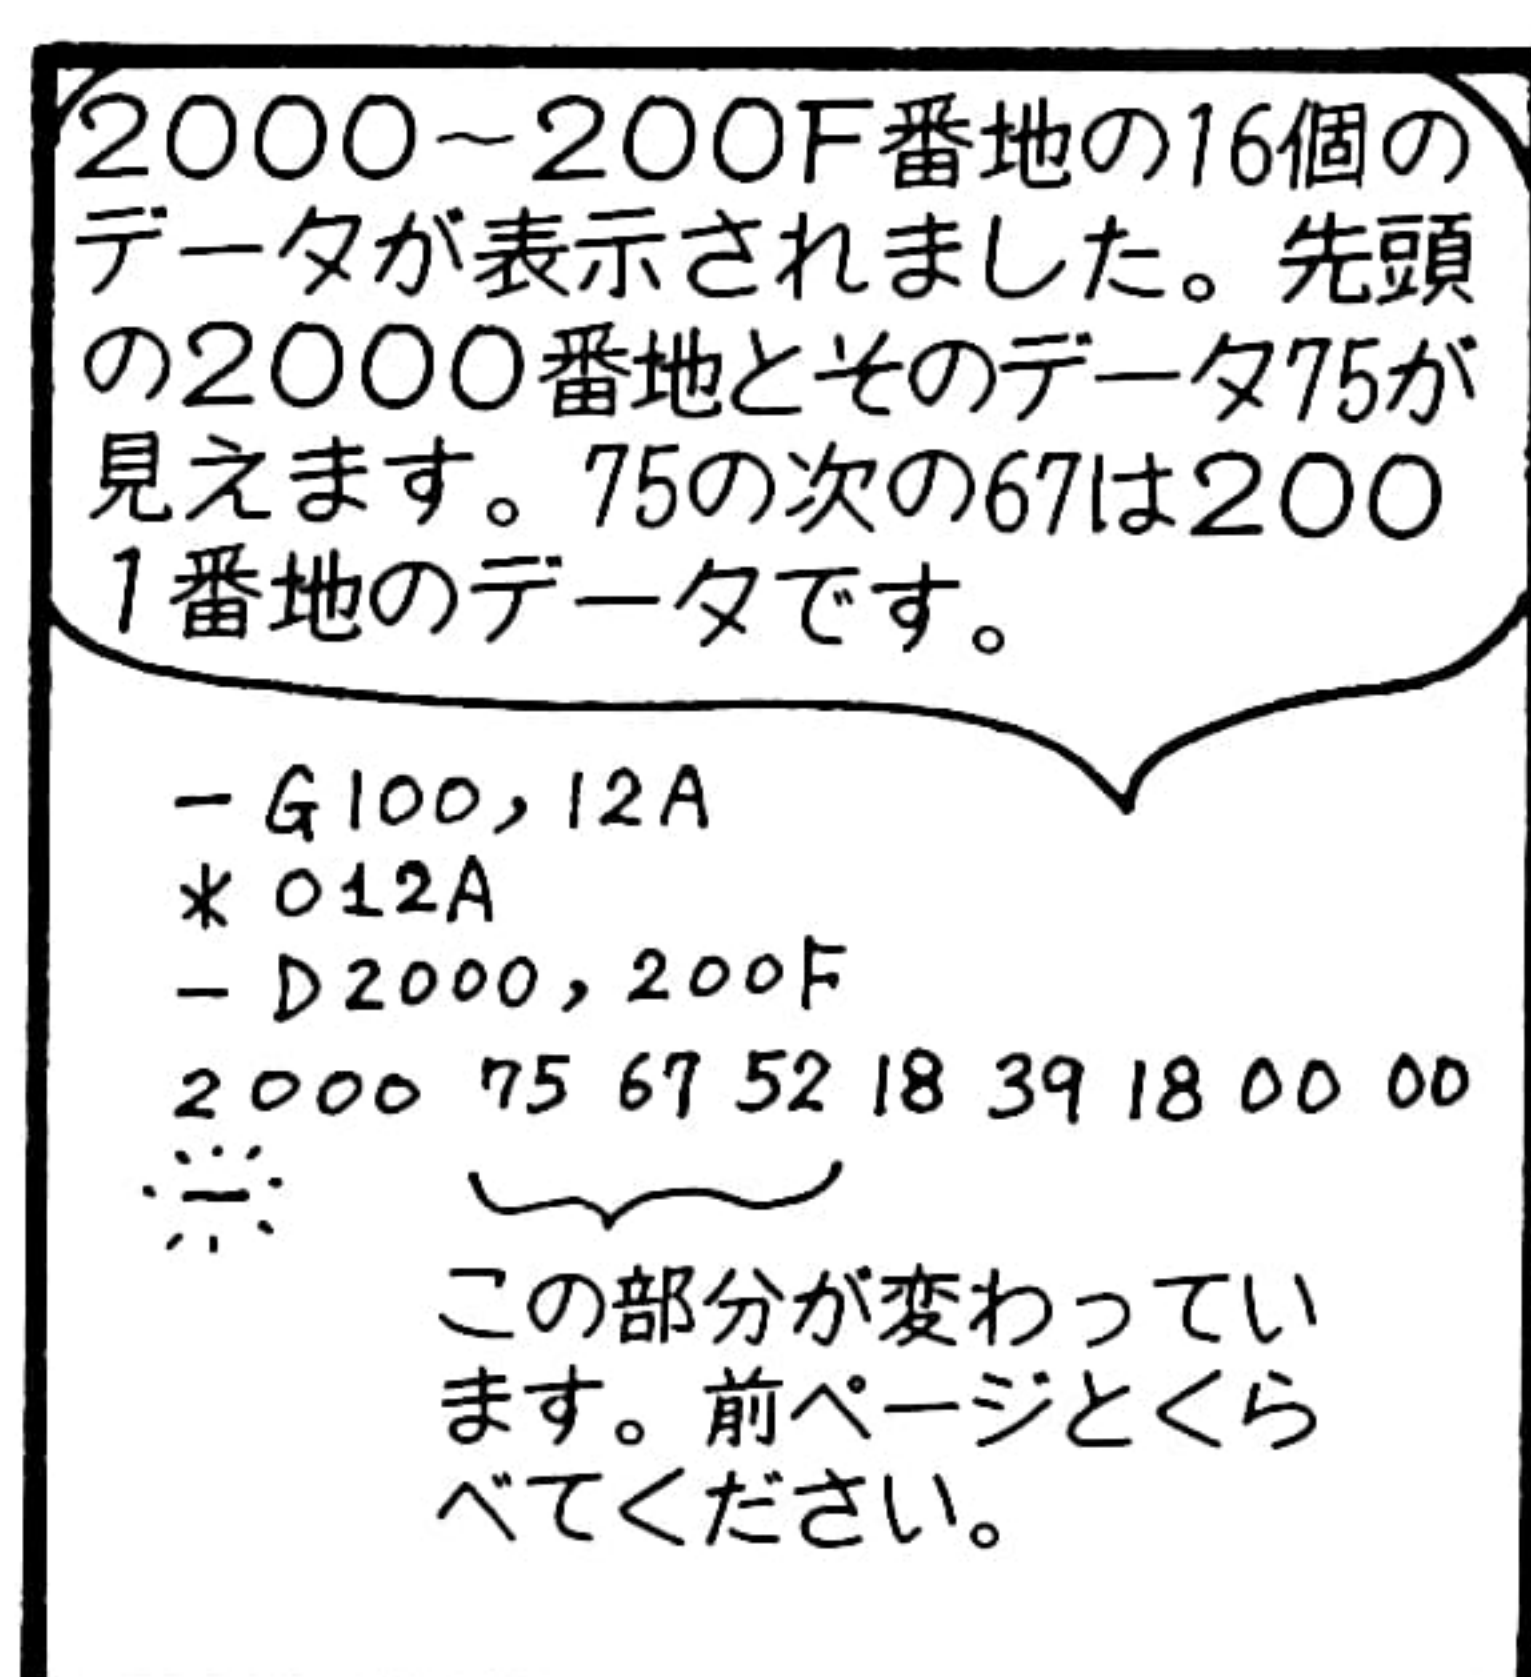 2000～200F番地の16個の
データが表示されました。先頭
の2000番地とそのデータ75が
見えます。75の次の67は200
1番地のデータです。
－G100，12A
＊012A
－D2000，200F
2000 75 67 52 18 39 18 00 00
－
この部分が変わってい
ます。前ページとくら
べてください。